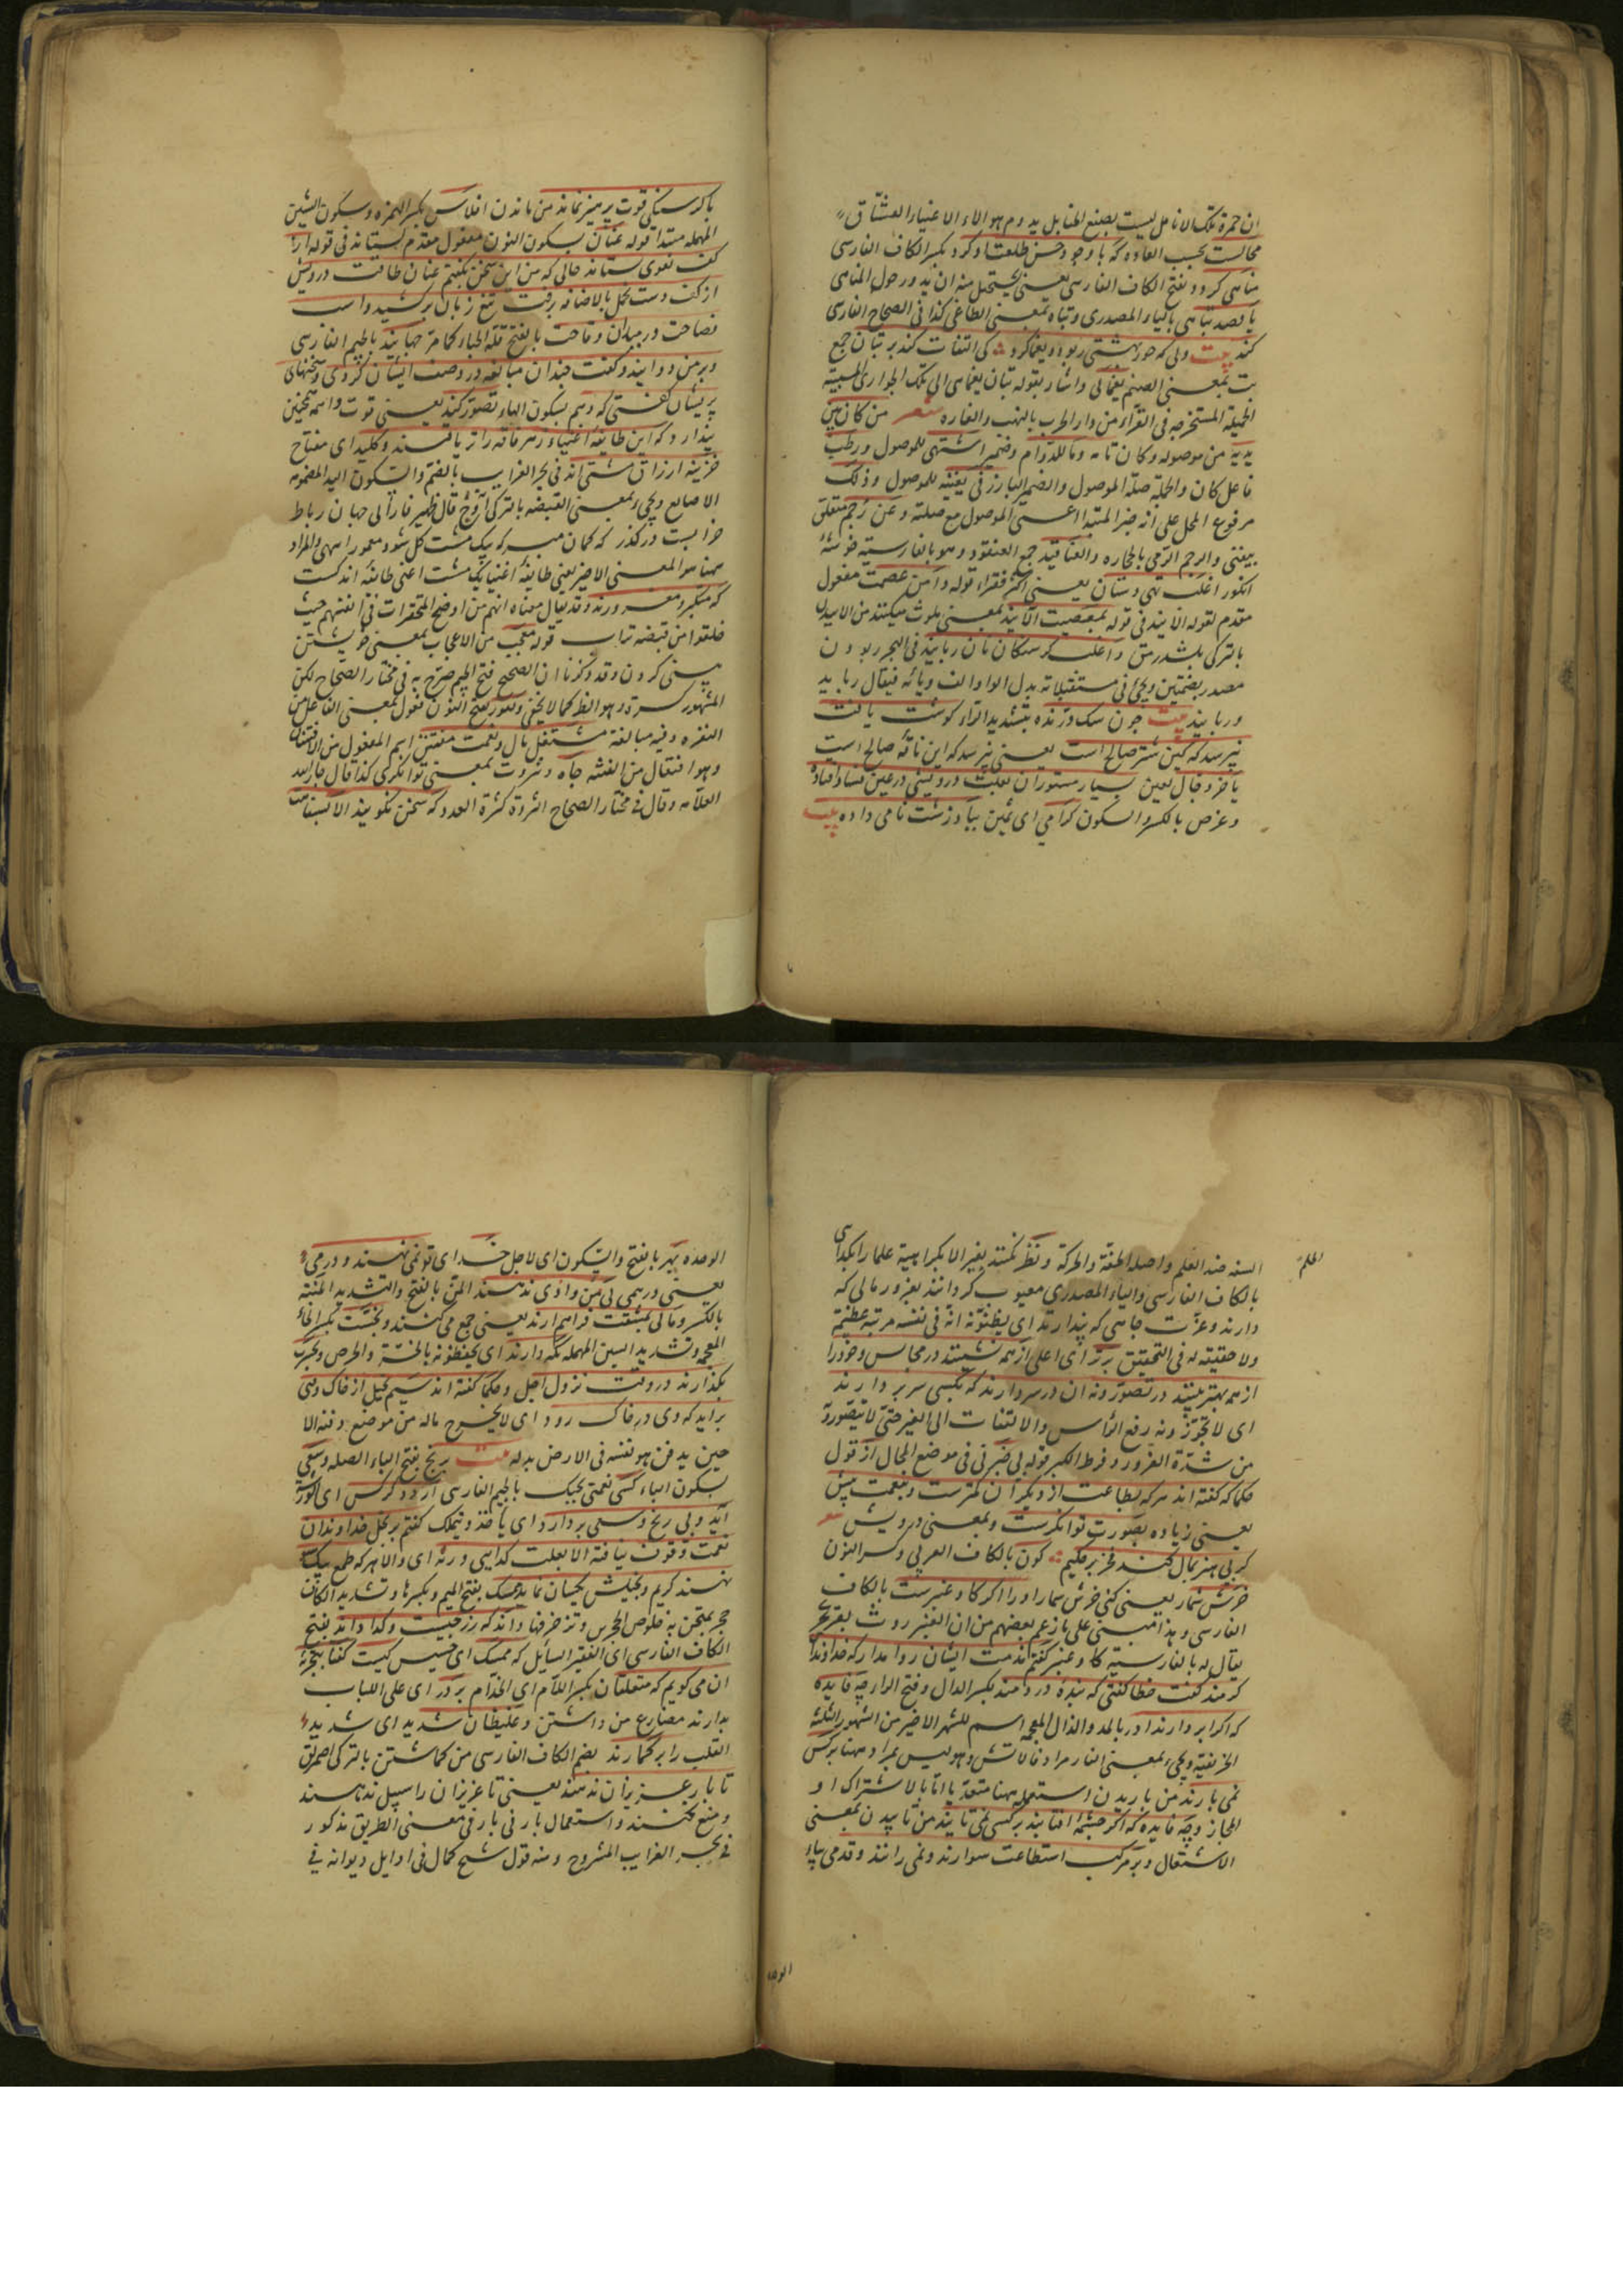 ان حمرة تلک الانامل لیست بصنع الحنا بل یدوم هو الاء الاغنیاء العشاق
محالست بحسب العاده که با وجود حسن طلعت او کرد بکسر الکاف الفارسی
مناهی کردد بفتح الکاف الفارسی یعنی یستحیل منه ان یدور حول المناهی
یا قصد تباهی بالیاء المصدری وتباه بمعنی الطاغی کذا فی الصحاح الفارسی
کند بیت ولی که حور بهشتی ربود ویغما کرد کی التفات کند بر بتان جمع
بت بمعنی الصنم یغمائی واشار بقوله بتان یغمایی الی تلک الجواری المسبیة
الجمیلة المستخرجه فی الغزاء من دار الحرب بالنهب والغاره شعر من کان بین
یدیه من موصوله وکان تامه وما للدوام وضمیر اشتهی للموصول ورطب
فاعل کان والجملة صلة الموصول والضمیر البارز فی یغنیه للموصول وذلک
مرفوع المحل علی انه خبر المبتدا اعنی الموصول مع صلته وعن رجم متعلق
بیغنی والرجم الرمی بالحجاره والعناقید جمع العنقود وهو بالفارسیه خوشهٔ
انکور اغلب تهی دستان یعنی اکثر فقراء قوله دامن عصمت مفعول
مقدم لقوله الایند فی قوله بمعصیت الایند بمعنی ملوث میکنند من الاییدن
بالترکی بلشدرمق واغلب کرسنکان نان ربایند فی البحر ربودن
مصدر بضمتین ویجیء فی مستقبلاته بدل الواو الف ویائه فیقال رباید
وربایند بیت چون سک درنده بتشدید الراء کوشت یافت
نپرسد که کین شتر صالح است یعنی نپرسد که این ناقهٔ صالح است
یا خر دجال لعین بسیار مستوران بعلت درویشی در عین فساد افتاده
وعرض بالکسر والسکون کرامی ای ثمین بباد زشت نامی داده بیت
با کرسنکی قوت پرهیز نماند من ماندن افلاس بکسر الهمزه وسکون الشین
المهمله مبتدا قوله عنان بسکون النون مفعول مقدم لبستاند فی قوله از
کف تقوی بستاند حالی که من این سخن بکفتم عنان طاقت درویش
از کف دست تحمل بالاضافه برفت تیغ زبان برکشید واسب
فصاحت در میدان وقاحت بالفتح قلة الحیاء کما مر جهانید بالجیم الفارسی
وبر من دوانید وکفت چندان مبالغه در وصف ایشان کردی وسخنهای
پریشان کفتی که وهم بسکون الهاء تصور کند یعنی قوت واهمه چنین
پندارد که این طایفهٔ اغنیاء زهر فاقه را تریاقند وکلید ای مفتاح
خزینه ارزاق مشتی اند فی بحر الغرایب بالضم والسکون الید المضمومه
الاصابع ویجیء بمعنی القبضه بالترکی آووج قال ظهیر فاریابی جهان رباط
خرابست در کذر که کمان مبر که بیک مشت کل شود معمور انتهی والمراد
ههنا هو المعنی الاخیر یعنی طایفهٔ اغنیا یک مشت اعنی طائفه اندکست
که متکبر ومغرورند وقد یقال معناه انهم من اوضح المحقرات فی انفسهم حیث
خلقوا من قبضه تراب قوله معجب من الاعجاب بمعنی خویشتن
بینی کردن وقد ذکرنا ان الصحیح فتح الجیم صرح به فی مختار الصحاح لکن
المشهور کسره وهو الظ کما لا یخفی ونفور بفتح النون فعول بمعنی الفاعل من
النفره وفیه مبالغة مشتغل مال ونعمت مفتتن اسم المفعول من الافتتان
وهو افتعال من الفتنه جاه وثروت بمعنی توانکری کذا قال جار الله
العلامه وقال فی مختار الصحاح الثروة کثرة العدد که سخن نکویند الا بسفاهت
الحلم
السفه ضد الحلم واصله الخفة والحرکة ونظر نکنند بغیر الا بکراهیة علما را بکدایی
بالکاف الفارسی والیاء المصدری معیوب کردانند بغرور مالی که
دارند وعزت جاهی که پندارند ای یظنونه انه فی نفسه مرتبة عظیمة
ولا حقیقة له فی التحقیق برتر ای اعلی از همه نشینند در مجالس وخود را
از همه بهتر بینند در تصور ونه ان در سر دارند که بکسی سر بردارند
ای لا یجوزونه رفع الرأس والالتفات الی الغیر حتی لا یتصوره
من شدة الغرور وفرط الکبر قوله بی خبر فی موضع الحال از قول
حکما که کفته اند هر که بطاعت از دیکران کمترست وبنعمت بیش
یعنی زیاده بصورت توانکرست وبمعنی درویش شعر
کر بی هنر بمال کند فخر بر حکیم کون بالکاف العربی وکسر النون
خرش شمار یعنی کنی خرش شمار او را اکر کاو عنبرست بالکاف
الفارسی وهذا مبنی علی ما زعم بعضهم من ان العنبر روث بقر بحر
یقال له بالفارسیة کاو عنبر کفتم مذمت ایشان روا مدار که خداوندان
کرمند کفت خطا کفتی که بنده درمند بکسر الدال وفتح الراء چه فایده
که اکر ابر دارند اذر بالمد والذال المعجمه اسم للشهر الاخیر من الشهور الثلثة
الخریفیة ویجیء بمعنی النار مرادفا لاتش وهو لیس بمراد ههنا بر کس
نمی بارند من باریدن استعمله ههنا متعدیا اما بالاشتراک او
المجاز وچه فایده که اکر چشمهٔ افتابند بر کسی نمی تابند من تابیدن بمعنی
الاشتعال وبر مرکب استطاعت سوارند ونمی رانند وقدمی بپاء
الوحده بهر بالفتح والسکون ای لاجل خدای تو نمی نهند ودرمی
یعنی درهمی بی من واذی ندهند المن بالفتح والتشدید المنة
بالکسر ومالی بمشقت فراهم ارند یعنی جمع می کنند وبخست بکسر الخاء
المعجمه وتشدید السین المهمله نکه دارند ای یحفظونه بالخسة والحرص وبحسرت
بکذارند در وقت نزول اجل وحکما کفته اند سیم بخیل از خاک وقتی
براید که وی در خاک رود ای لا یخرج ماله من موضع دفنه الا
حین یدفن هو نفسه فی الارض بدله بیت برنج بفتح الباء الصله وسعی
بسکون الیاء کسی نعمتی بچنک بالجیم الفارسی آرد دکر کس ای
آید وبی رنج وسعی بردارد ای یاخذ ویملک کفتم بر بخل خداوندان
نعمت وقوف نیافتهٔ الا بعلت کدایی ورنه ای والا هر که طمع بیک سو
نهند کریم وبخیلش یکسان نماید محک بفتح المیم وبکسرها وتشدید الکاف
حجر یمتحن به خلوص الجوهر وتزخرفها داند که زر چیست وکدا داند بفتح
الکاف الفارسی ای الفقیر السایل که ممسک ای خسیس کیست کفتا بتجربهٔ
ان می کویم که متعلقان بکسر اللام ای الخدام بر در ای علی الباب
بدارند مضارع من داشتن وغلیظان شدید ای شدید
القلب را برکمارند بضم الکاف الفارسی من کماشتن بالترکی اصمرلق
تا بار عزیزان ندهند یعنی تا عزیزان را سبیل ندهند
ومنع کنند واستعمال بار فی بار فی معنی الطریق مذکور
فی بحر الغرایب المشروح ومنه قول شیخ کمال فی اوایل دیوانه فی
الوحده